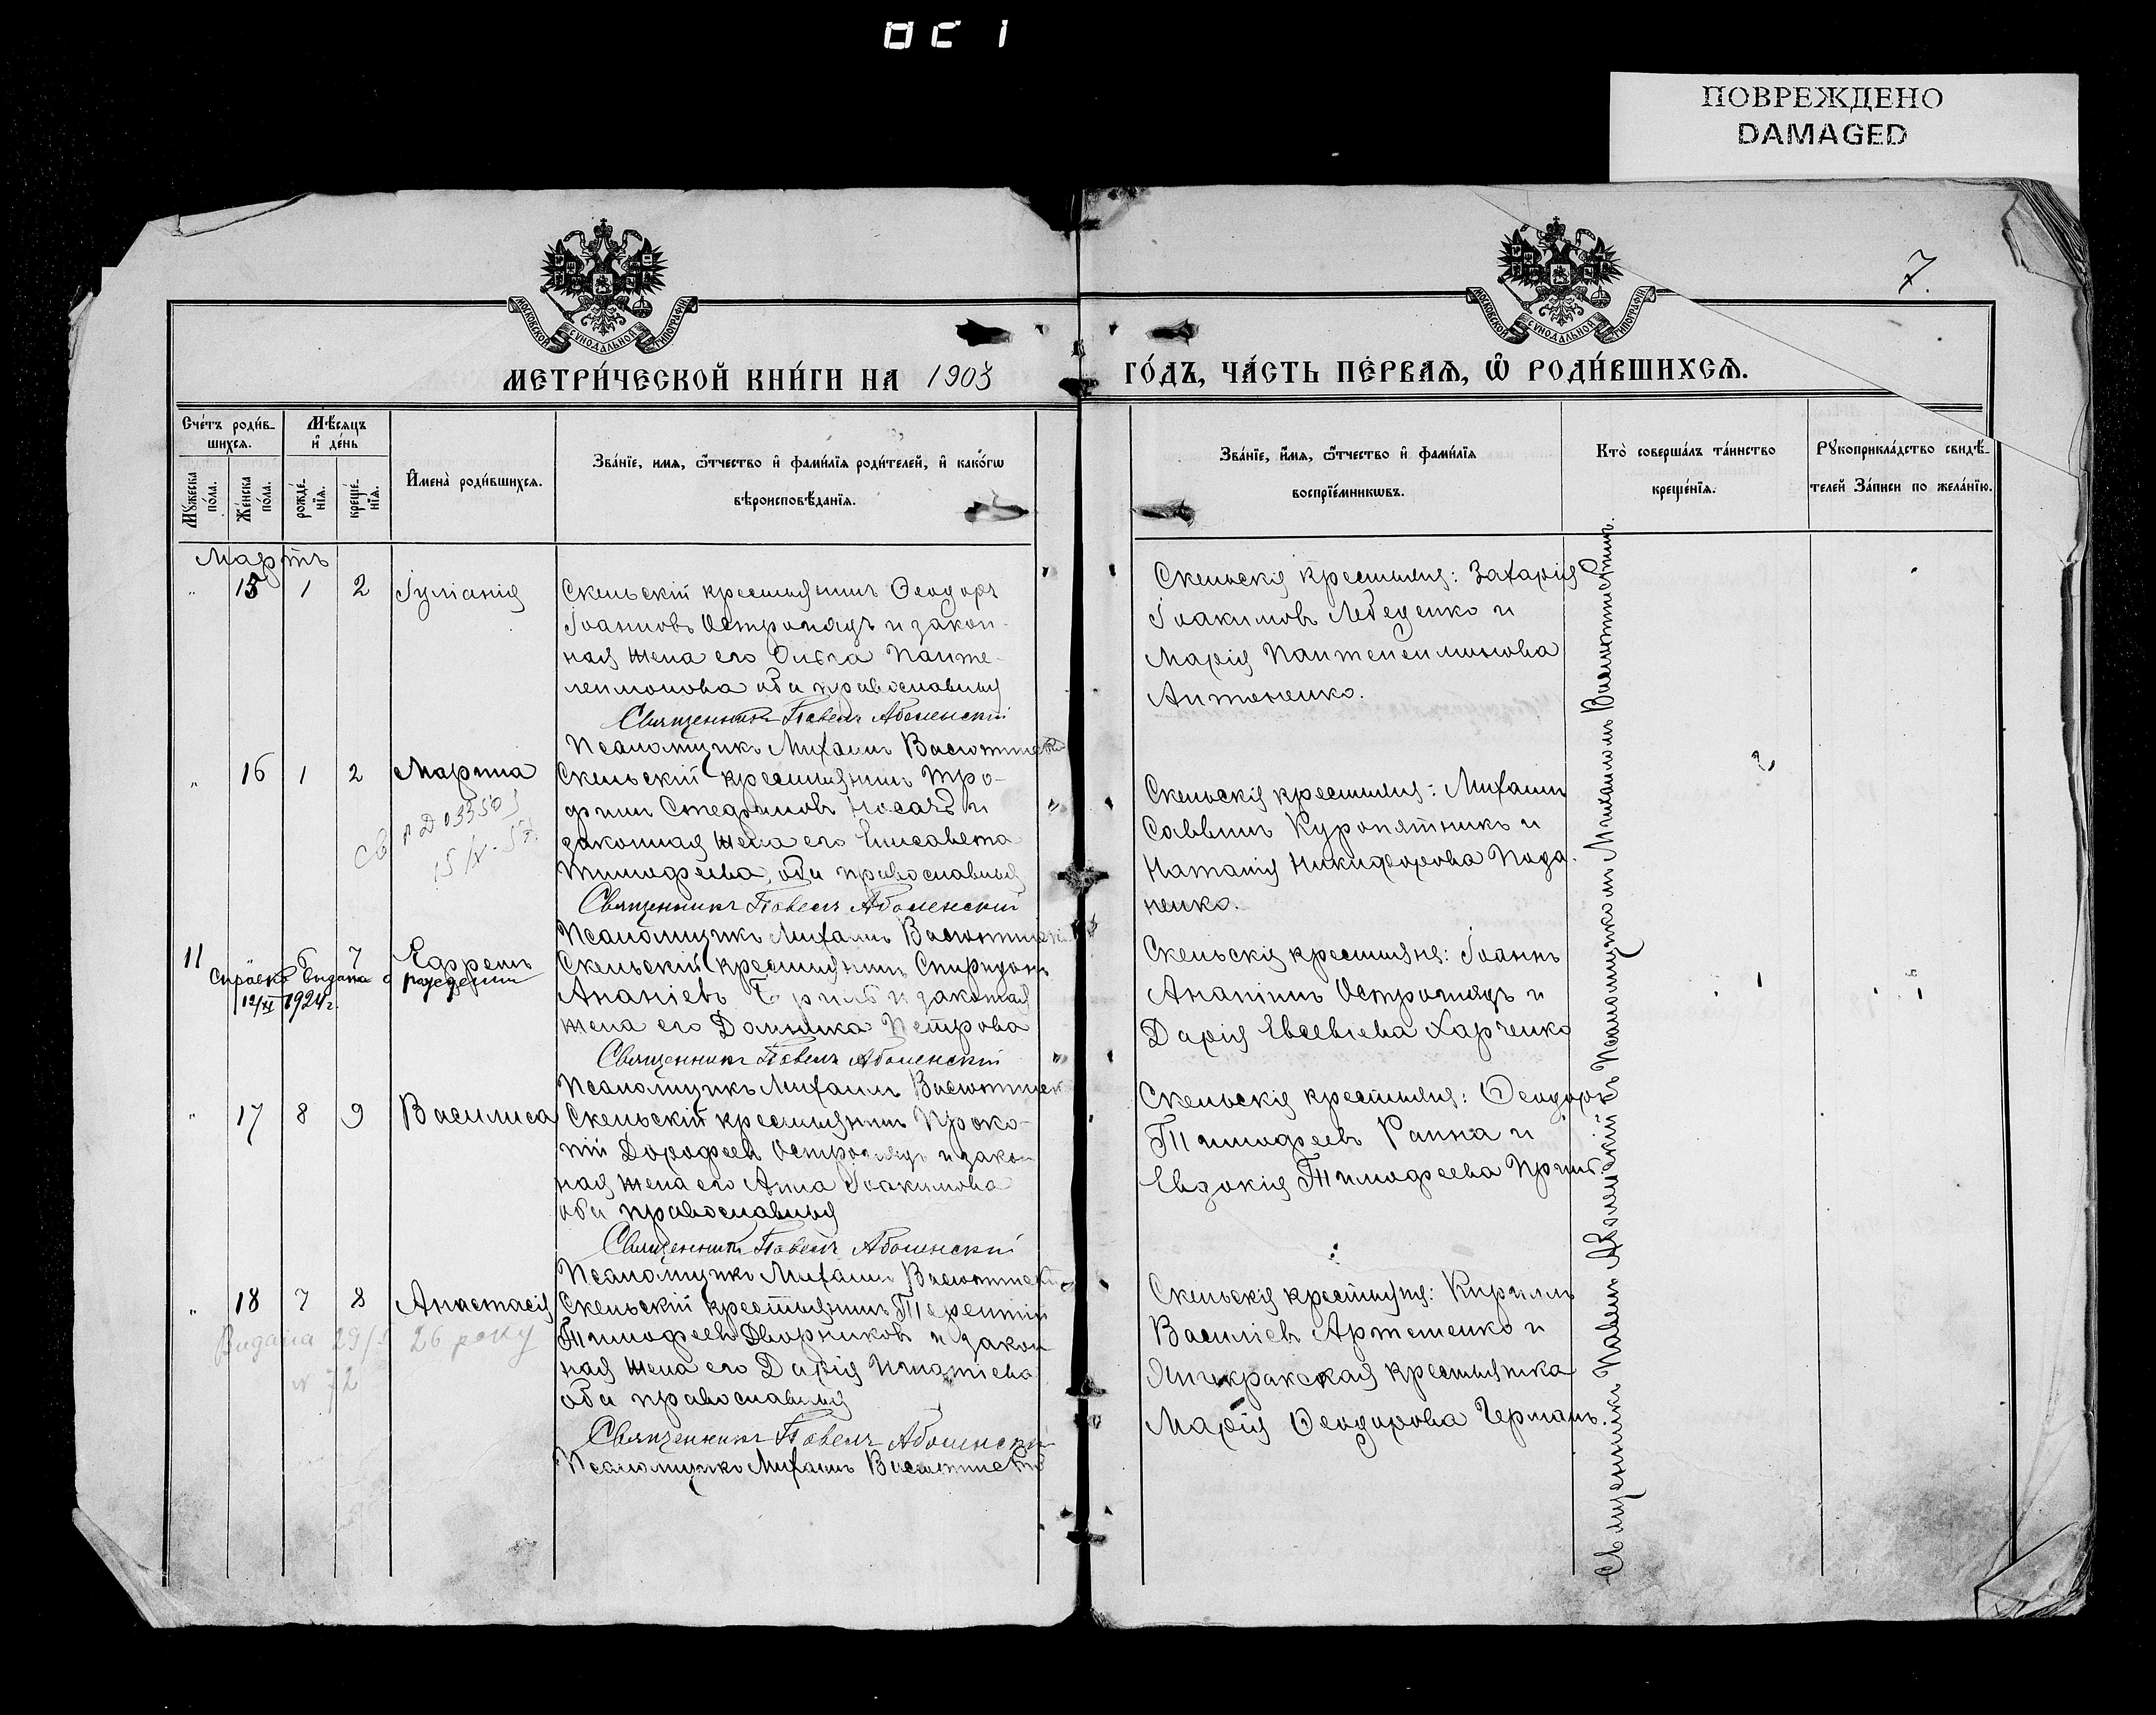 ПОВРЕЖДЕНО
DAMAGED
7.
МОСКОВСКОЙ СѴНОДАЛЬНОЙ ТИПОГРАФІИ
МОСКОВСКОЙ СѴНОДАЛЬНОЙ ТИПОГРАФІИ
МЕТРИ́ЧЕСКОЙ КНИ́ГИ НА 1903
ГО́ДЪ, ЧА́СТЬ ПЕ́РВАЯ, Ѽ РОДИ́ВШИХСЯ.
Сче́тъ роди́в-
шихся.
Мѣ́сяцъ
и҆ де́нь
Мꙋ́жеска
по́ла.
Же́нска
по́ла.
рожде́-
нїя.
креще́-
нїя.
И҆мена̀ роди́вшихся.
Зва́нїе, имя, ѻ҆́тчество и҆ фами́лїя роди́телей, и҆ како́гѡ
вѣроисповѣ́данїя.
Зва́нїе, и҆́мя, ѻ҆́тчество и҆ фами́лїя
воспрїе́мникѡвъ.
Кто̀ соверша́лъ та́инство
креще́нїя.
Рꙋкоприкла́дство свидѣ́-
телей за́писи по жела́нїю.
Мартъ
" 15 1 2 Іуліанія
Скельскій крестьянинъ Ѳеодоръ
Іоанновъ Остропядъ и закон-
ная жена его Ольга Панте-
леимонова оба православныя
Священникъ Павелъ Аболенскій
Псаломщикъ Михаилъ Васютинскій
Скельскія крестьяня: Захарія
Іоакимовъ Лебеденко и
Марія Пантелеимонова
Антоненко.
" 16 1 2 Марина
Скельскій крестьянинъ Тро-
фимъ Стефановъ Носачъ и
законная жена его Елисавета
Тимофеева, оба православныя
Священникъ Павелъ Аболенскій
Псаломщикъ Михаилъ Васютинскій
Скельскія крестьяня: Михаилъ
Саввинъ Куропятникъ и
Наталія Никифорова
11 6 7 Ефремъ
Справка выдана о рождении
12/XI 1924 г.
Скельскій крестьянинъ Спиридонъ
Ананіевъ и законная
жена его Домника Петрова
Священникъ Павелъ Аболенскій
Псаломщикъ Михаилъ Васютинскій
Скельскія крестьяня: Іоаннъ
Ананіинъ Остропядъ и
Дарія Евсевіева Харченко
" 17 8 9 Василиса
Скельскій крестьянинъ Проко-
пій Дорофеевъ Остропядъ и закон-
ная жена его Анна Іоакимова
оба православныя
Священникъ Павелъ Аболенскій
Псаломщикъ Михаилъ Васютинскій
Скельскія крестьяня: Ѳеодоръ
Тимофеевъ и
Евдокія Тимофеева
" 18 7 8 Анастасія
Видана 29/ 26 року
N 72
Скельскій крестьянинъ Терентій
Тимофеевъ Дворниковъ и закон-
ная жена его Дарія Игнатіева
оба православныя
Священникъ Павелъ Аболенскій
Псаломщикъ Михаилъ Васютинскій
Скельскія крестьяня: Кириллъ
Василіевъ Артеменко и
крестьянка
Марія Ѳеодорова Германъ.
Священникъ Павелъ Аболенскій Псаломщикомъ Михаиломъ Васютинскимъ.